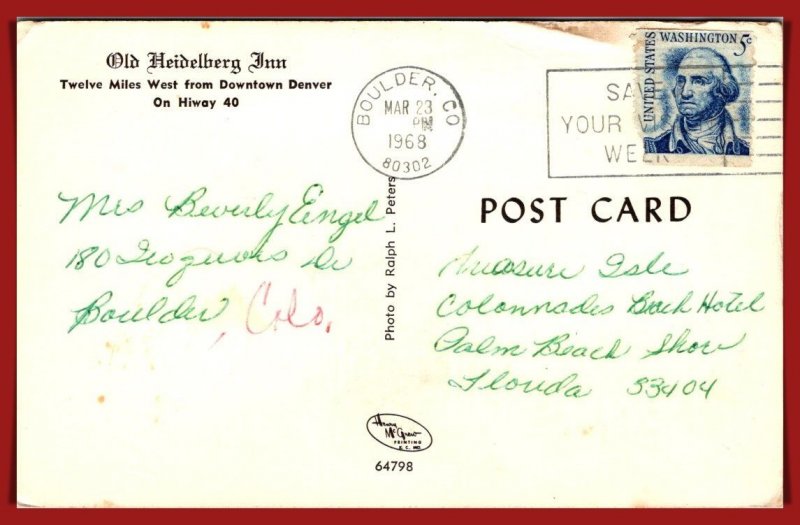 Old Heidelberg Inn
Twelve Miles West from Downtown Denver
On Hiway 40
BOULDER, CO
MAR 23
PM
1968
80302
SAVE
YOUR V
WEEK
UNITED STATES
WASHINGTON 5c
Mrs Beverly Engel
180 Iroquois Dr
Boulder, Colo.
Photo by Ralph L. Peters
POST CARD
Treasure Isle
Colonnades Beach Hotel
Palm Beach Shore
Florida 33404
Henry
McGrew
PRINTING
K.C. MO.
64798